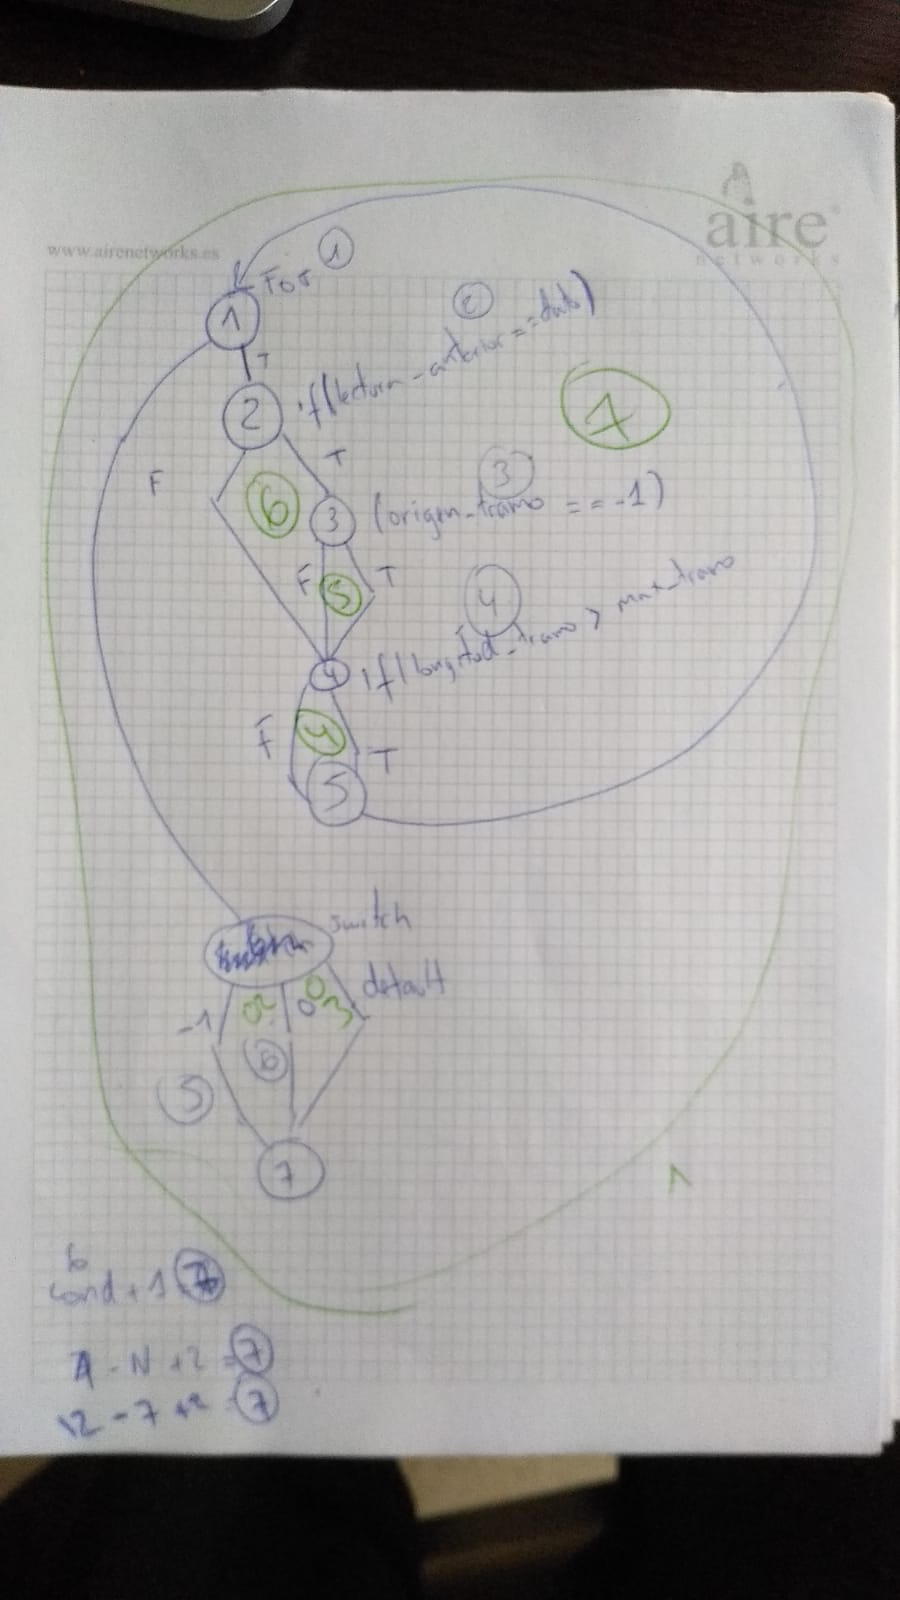 aire
networks
www.airenetworks.es
1
For
1
T
2
2
if(lectura_anterior==dato)
7
F
T
6
3
3
(origen_tramo ==-1)
F
5
T
4
4
if(longitud_tramo > max_tramo
F
4
T
5
switch
default
-1
2
0
3
5
6
7
1
6
cond + 1 7
A - N + 2 = 7
12 - 7 + 2 = 7